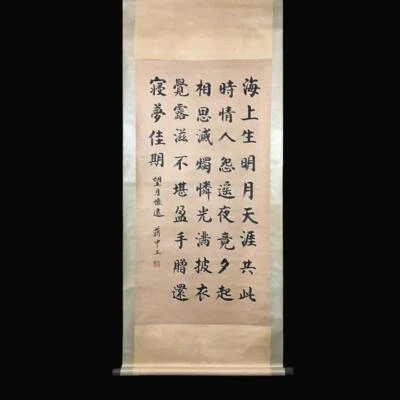 海上生明月天涯共此
時情人怨遥夜竟夕起
相思滅燭憐光滿披衣
覺露滋不堪盈手贈還
寝夢佳期
望月懷遠 蔣中正